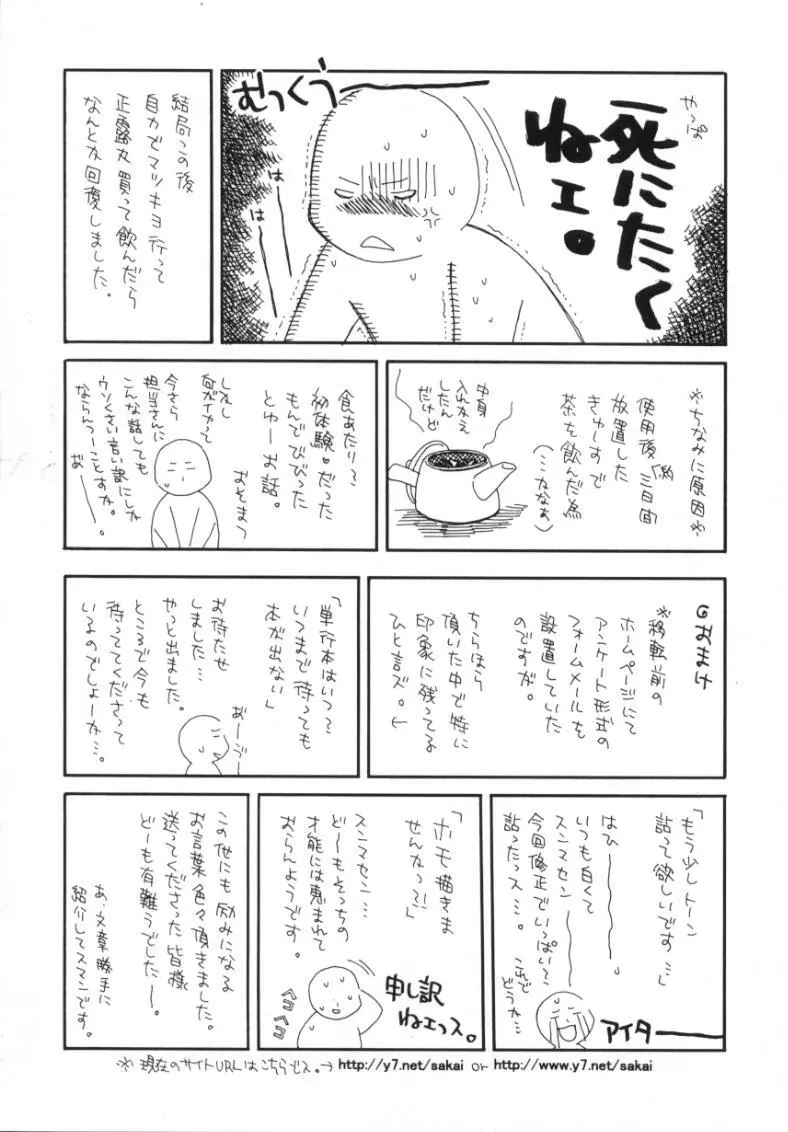 やっぱ
死にたく
ねェ。
むっくぅーーー
はーー
はーー
結局この後
自力でマツキヨ行って
正露丸買って飲んだら
なんとか回復しました。
※ちなみに原因※
使用後(約)三日間
放置した
きゅーすで
茶を飲んだ為
(ここねなぁ)
中身
入れかえ
したん
だけど
食あたり〜
初体験♥だった
もんでびびった
とゆーお話。
おそまつ
しかし
何がイカって
今さら
担当さんに
こんな話しても
ウソくさい言い訳にしか
ならんつーことすか。
おーー。
◎おまけ
※移転前の
ホームページにて
アンケート形式の
フォームメールを
設置していた
のですが。
ちらほら
頂いた中で特に
印象に残ってる
ひと言ズ。↓
「単行本はいつ〜
いつまで待っても
本が出ない」
お待たせ
しました…
やっと出ました。
ところで今も
待っててくださって
いるのでしょーか…。
おーぅー
「もう少しトーン
貼って欲しいです…」
はひーーー。
いつも白くて
スンマセンーー
今回修正でいっぱい〜
貼ったっス…。
これで
どうか…
アイターーー
「ホモ描きま
せんかっ?!」
スンマセン…
どーもそっちの
才能には恵まれて
おらんようです。
申し訳
ねェっス。
ペコペコ
この他にも励みになる
お言葉色々頂きました。
送ってくださった皆様
どーも有難うでしたー。
あ、文章勝手に
紹介してスマンです。
※現在のサイトURLはこちらでス。→ http://y7.net/sakai or http://www.y7.net/sakai